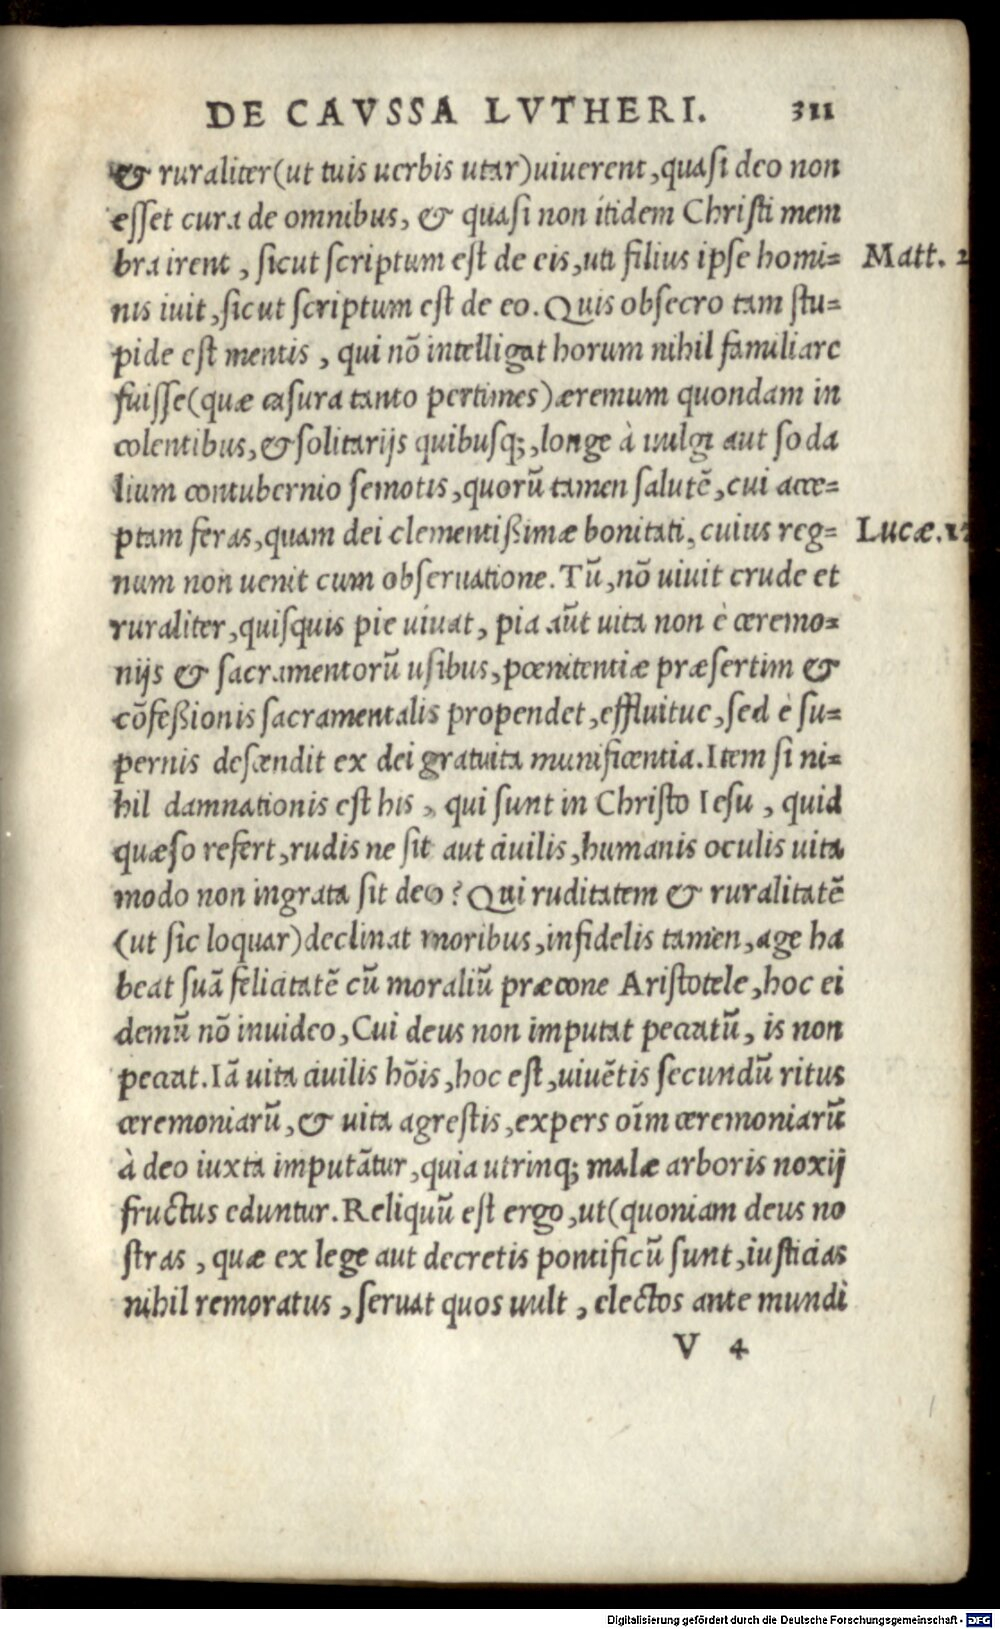 DE CAVSSA LVTHERI. 311
& ruraliter(ut tuis uerbis utar)uiuerent,quasi deo non
esset cura de omnibus, & quasi non itidem Christi mem
bra irent, sicut scriptum est de eis,uti filius ipse homi= Matt. 2
nis iuit,sicut scriptum est de eo. Quis obsecro tam stu=
pide est mentis, qui nō intelligat horum nihil familiare
fuisse(quæ casura tanto pertimes)æremum quondam in
colentibus,& solitarijs quibusq;,longe à uulgi aut soda
lium contubernio semotis,quorū tamen salutē,cui acce=
ptam feras,quam dei clementißimæ bonitati,cuius reg= Lucæ.17
num non uenit cum obseruatione.Tū,nō uiuit crude et
ruraliter,quisquis pie uiuat, pia aūt uita non è ceremo=
nijs & sacramentorū usibus,pœnitentiæ præsertim &
cōfeßionis sacramentalis propendet,effluitue,sed è su=
pernis descendit ex dei gratuita munificentia.Item si ni=
hil damnationis est his, qui sunt in Christo Iesu, quid
quæso refert,rudis ne sit aut ciuilis,humanis oculis uita
modo non ingrata sit deo? Qui ruditatem & ruralitatē
(ut sic loquar)declinat moribus,infidelis tamen,age ha
beat suā felicitatē cū moraliū præcone Aristotele,hoc ei
demū nō inuideo,Cui deus non imputat peccatū, is non
peccat.Iā uita ciuilis hōis,hoc est,uiuētis secundū ritus
ceremoniarū,& uita agrestis,expers oīm ceremoniarū
à deo iuxta imputātur,quia utrinq; malæ arboris noxij
fructus eduntur.Reliquū est ergo,ut(quoniam deus no
stras, quæ ex lege aut decretis pontificū sunt,iusticias
nihil remoratus, seruat quos uult, electos ante mundi
V 4
Digitalisierung gefördert durch die Deutsche Forschungsgemeinschaft - DFG